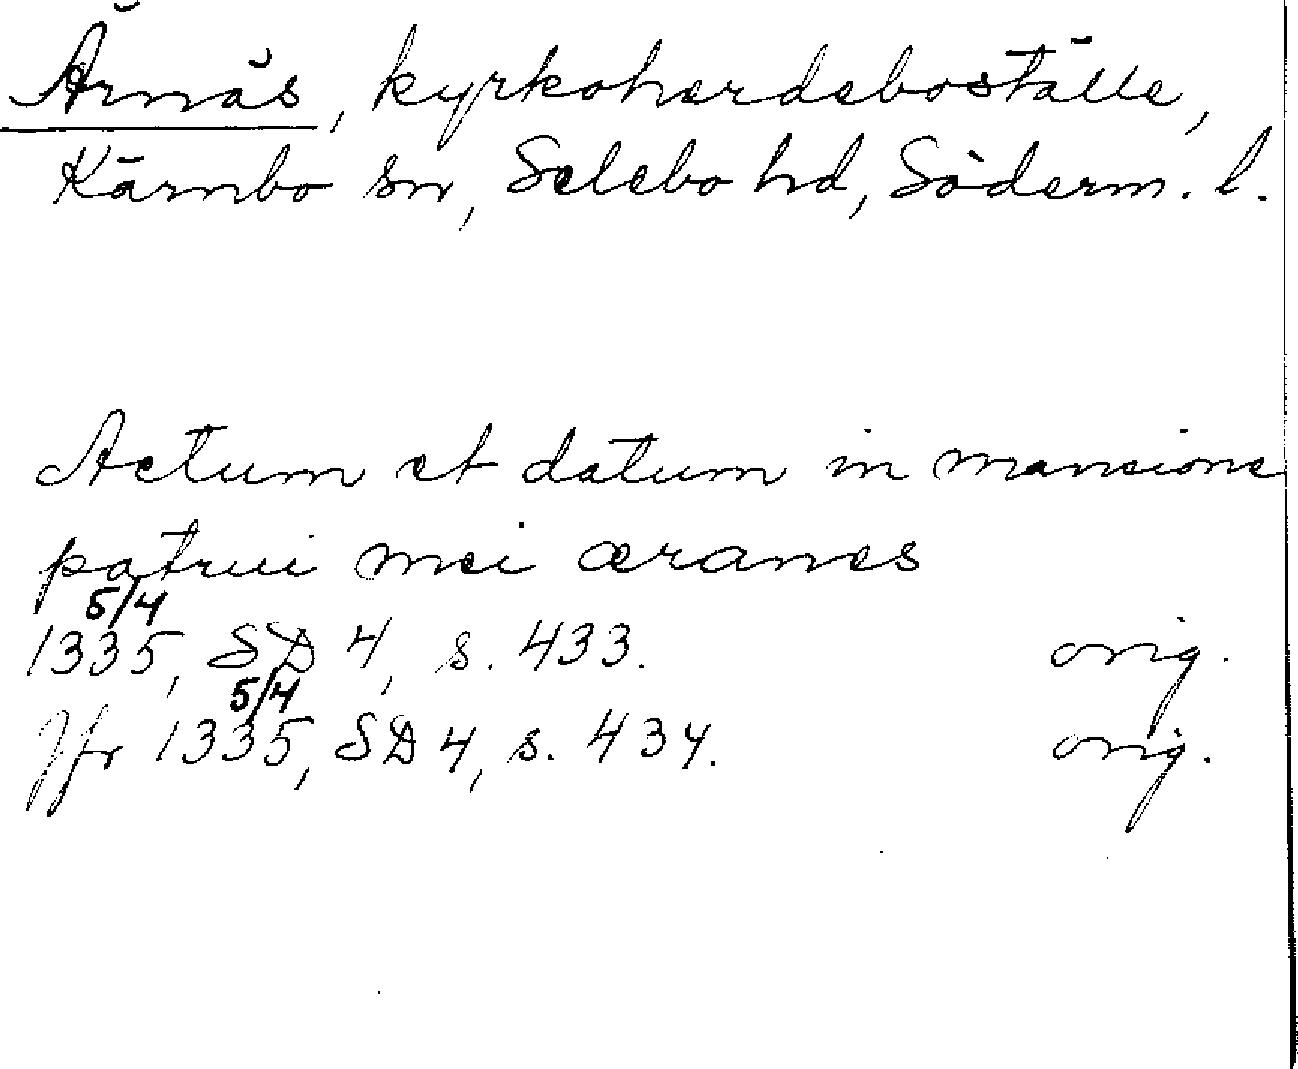 Ärnäs, kyrkoherdeboställe,
Kärnbo sn, Selebo hd, Söderm. l.
Actum et datum in mansione
patrui mei æranes
5/4
1335, SD 4, s. 433. orig.
5/4
Jfr 1335, SD 4, s. 434. orig.